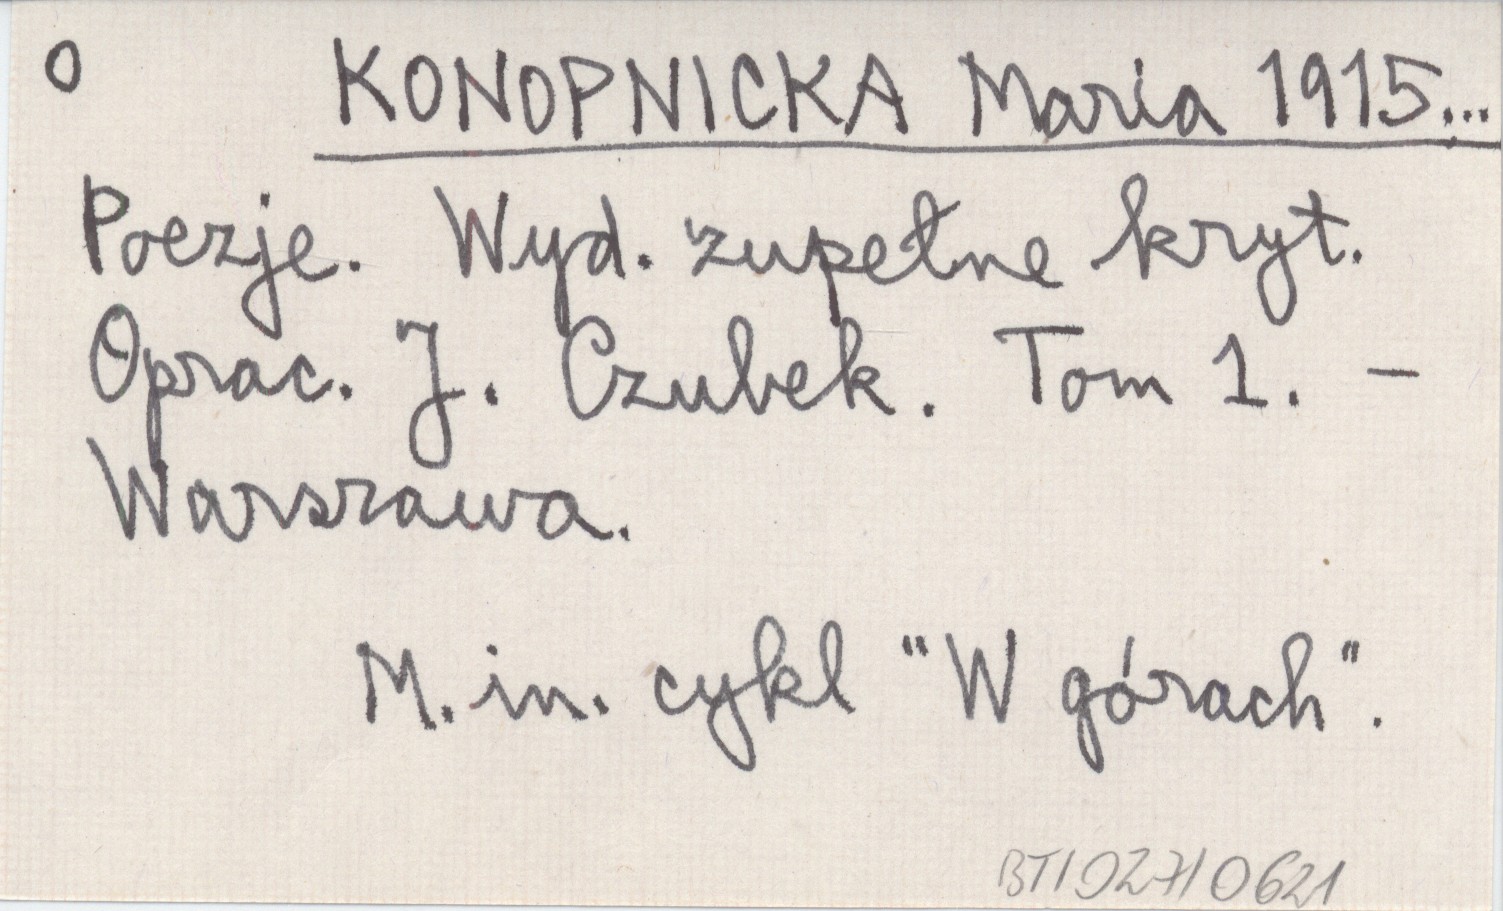 O KONOPNICKA Maria 1915...
Poezje. Wyd. zupełne kryt.
Oprac. J. Czubek. Tom 1. –
Warszawa.
M. in. cykl "W górach".
BT/027/0621